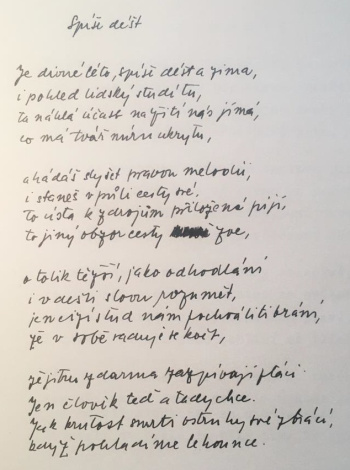 Spíše déšť
Je divné léto, spíše déšť a zima,
i pohled lidský studí tu,
ta náhlá účast na žití nás jímá,
co má tvář míru ukrytu,
a hádáš slyšet pravou melodii,
i staneš v půli cesty své,
to ústa k zdrojům přiložená pijí,
to jiný obzor cesty zve,
o tolik těžší, jako odhodlání
i v dešti slovu rozumět,
jen cizí stud nám pochválit brání,
že v sobě raduje se květ,
že jitru zdarma zazpívají ptáci.
Jen člověk teď a tady chce.
Jak krutost smrti ostruhy své ztrácí,
když pohladíme lehounce.